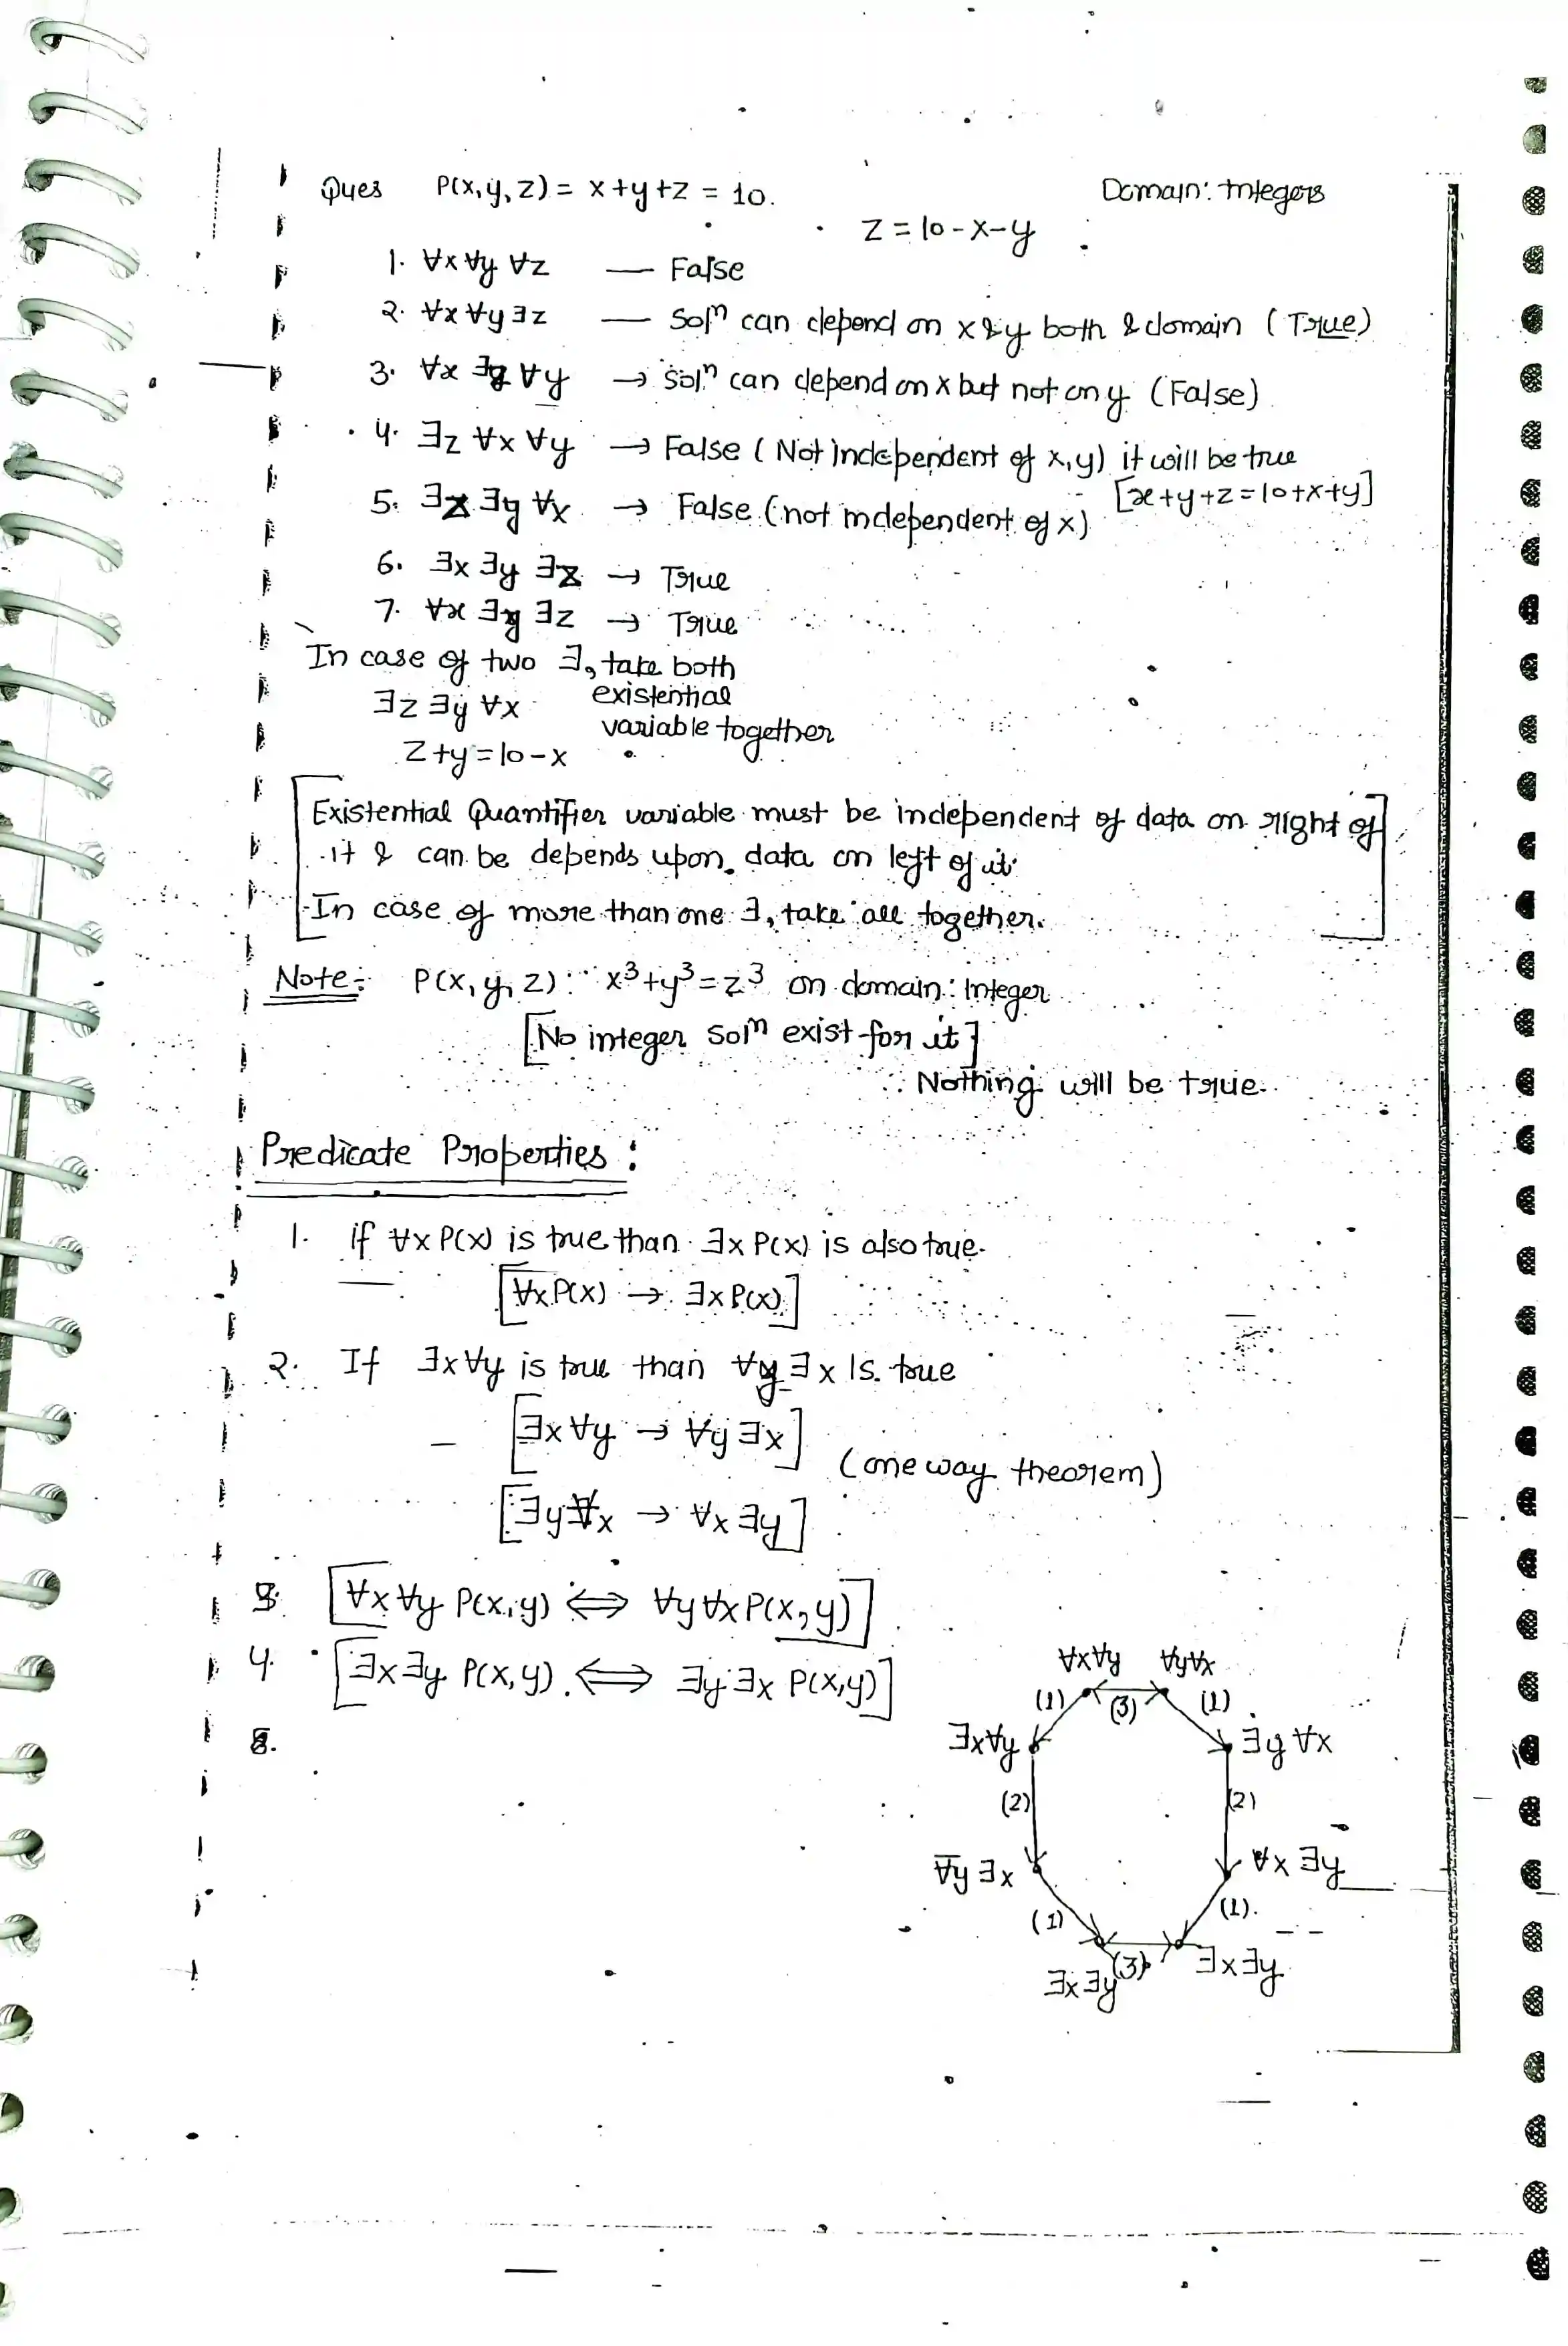 Ques P(x,y,z) = x+y+z = 10. Domain: Integers
z = 10-x-y
1. ∀x ∀y ∀z — False
2. ∀x ∀y ∃z — Solⁿ can depend on x & y both & domain (True)
3. ∀x ∃z ∀y → Solⁿ can depend on x but not on y (False)
4. ∃z ∀x ∀y → False (Not independent of x,y) it will be true
[x+y+z=10+x+y]
5. ∃z ∃y ∀x → False (not independent of x)
6. ∃x ∃y ∃z → True
7. ∀x ∃y ∃z → True
In case of two ∃, take both
existential
∃z ∃y ∀x
variable together
z+y = 10-x
Existential Quantifier variable must be independent of data on right of
it & can be depends upon data on left of it
In case of more than one ∃, take all together.
Note: P(x,y,z): x³+y³=z³ on domain: Integer
[No integer solⁿ exist for it]
∴ Nothing will be true.
Predicate Properties:
1. if ∀x P(x) is true than ∃x P(x) is also true.
[∀x P(x) → ∃x P(x)]
2. If ∃x ∀y is true than ∀y ∃x is true
[∃x ∀y → ∀y ∃x]
(one way theorem)
[∃y ∀x → ∀x ∃y]
3. [∀x ∀y P(x,y) ⟺ ∀y ∀x P(x,y)]
4. [∃x ∃y P(x,y) ⟺ ∃y ∃x P(x,y)]
∀x∀y ∀y∀x
(1) (3) (1)
5. ∃x∀y ∃y ∀x
(2) (2)
∀y ∃x ∀x ∃y
(1) (1)
∃x ∃y (3) ∃x ∃y